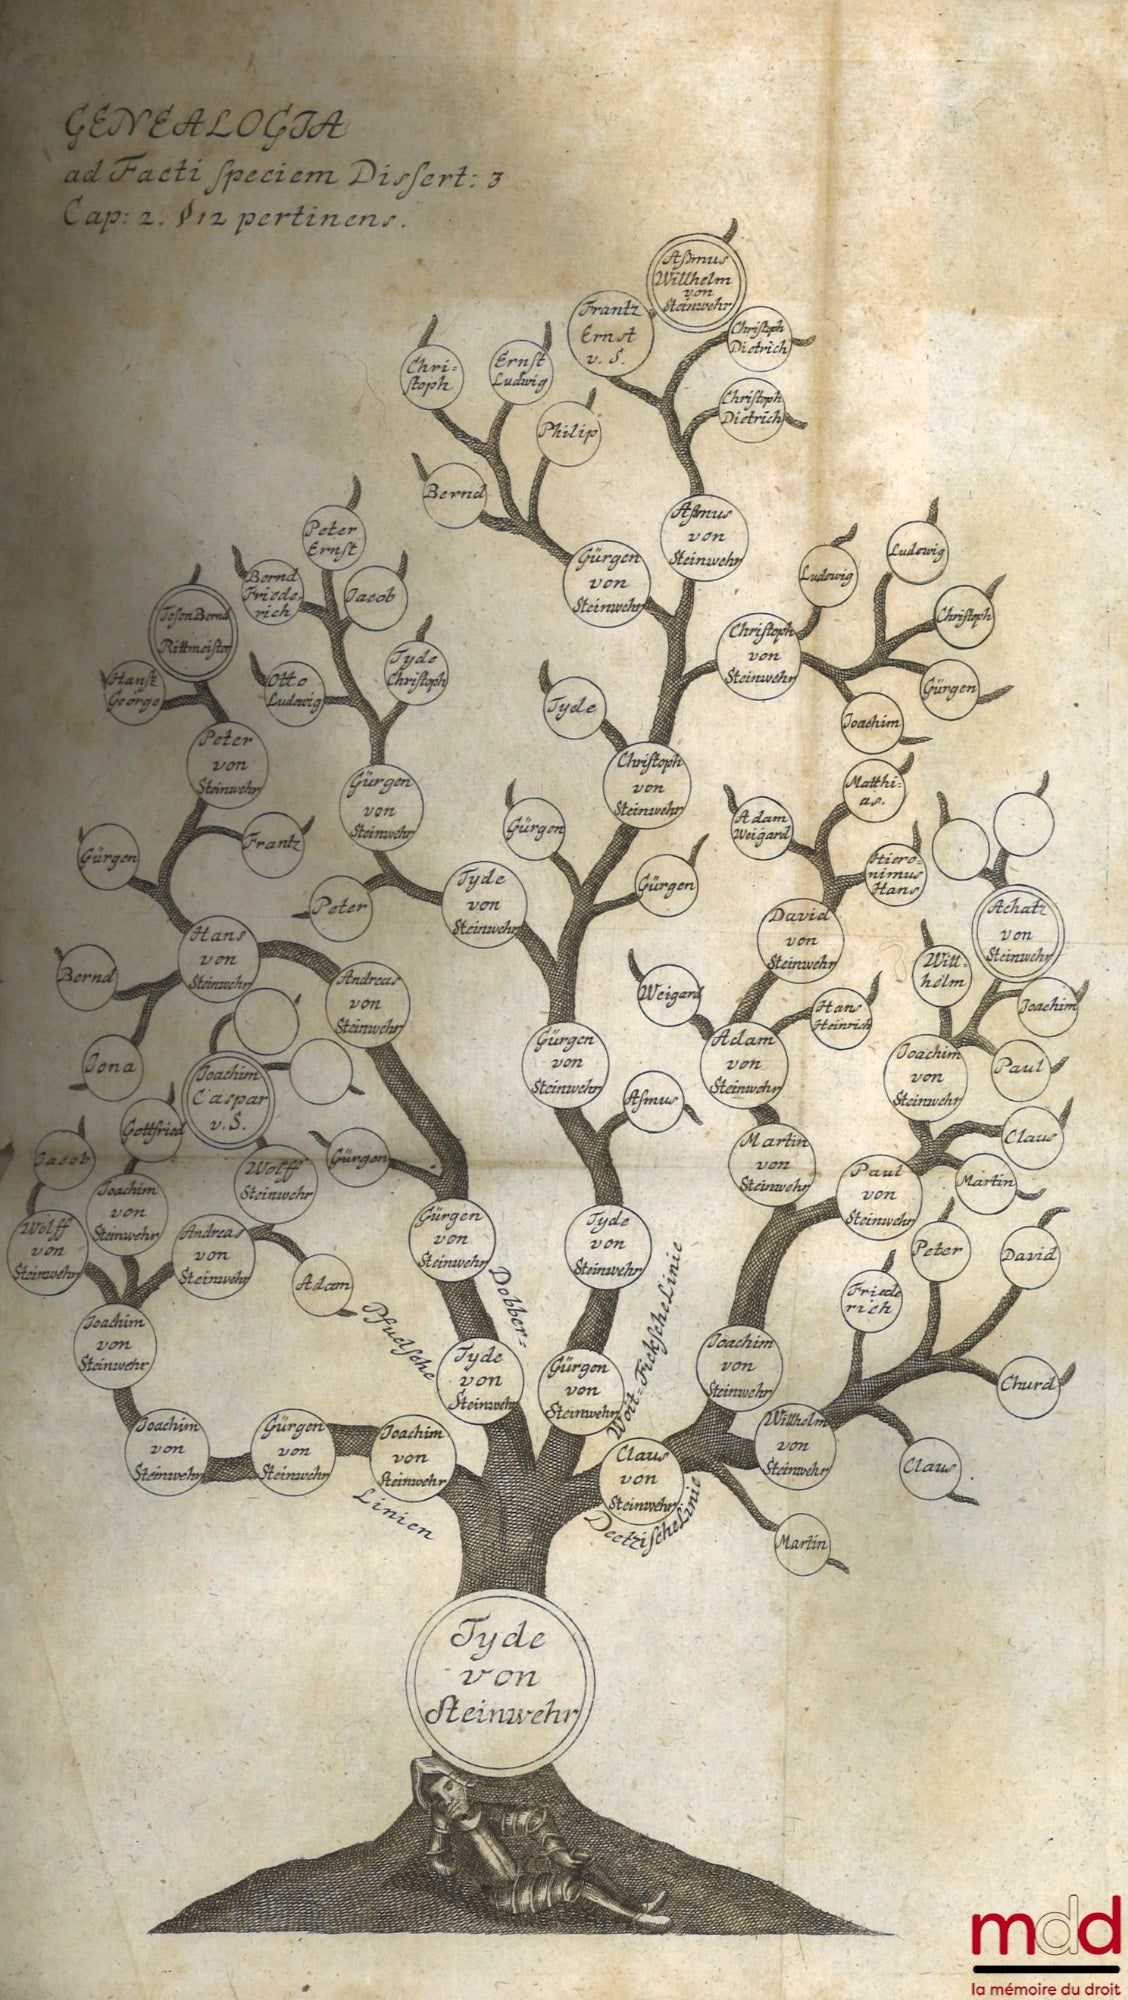 GENEALOGIA
ad Facti ſpeciem Disſert: 3
Cap: 2. §12 pertinens.
Aſmus
Willhelm
von
Steinwehr
Frantz
Ernst
v. S.
Chriſtoph
Dietrich
Chri=
ſtoph
Ernſt
Ludwig
Chriſtoph
Dietrich
Philip
Bernd
Aſmus
von
Steinwehr
Peter
Ernſt
Gürgen
von
Steinwehr
Ludwig
Ludwig
Bernd
Friede=
rich
Jacob
Bernd
Rittmeiſter
Chriſtoph
Chriſtoph
von
Steinwehr
Tyde
Chriſtoph
Hanſt
George
Otto
Ludewig
Gürgen
Tyde
Joachim
Peter
von
Steinwehr
Chriſtoph
von
Steinwehr
Gürgen
von
Steinwehr
Matthi=
as.
Adam
Weigard
Gürgen
Gürgen
Frantz
Gürgen
Hiero=
nimus
Hans
Peter
Tyde
von
Steinwehr
David
von
Steinwehr
Achatz
von
Steinwehr
Hans
von
Steinwehr
Bernd
Andreas
von
Steinwehr
Weigard
Will=
helm
Hans
Heinrich
Joachim
Jona
Gürgen
von
Steinwehr
Adam
von
Steinwehr
Joachim
von
Steinwehr
Paul
Joachim
Caspar
v. S.
Aſmus
Gottfried
Claus
Jacob
Wolff
Steinwehr
Gürgen
Martin
von
Steinwehr
Paul
von
Steinwehr
Martin
Joachim
von
Steinwehr
Wolff
von
Steinwehr
Andreas
von
Steinwehr
Gürgen
von
Steinwehr
Tyde
von
Steinwehr
Peter
David
Adam
Friede
rich
Pfuelſche
Dobber=
Woit=Fickſche Linie
Joachim
von
Steinwehr
Tyde
von
Steinwehr
Gürgen
von
Steinwehr
Joachim
von
Steinwehr
Churd
Joachim
von
Steinwehr
Gürgen
von
Steinwehr
Joachim
von
Steinwehr
Claus
von
Steinwehr
Willhelm
von
Steinwehr
Claus
Linien
Deetziſche Linie
Martin
Tyde
von
Steinwehr
mdd
la mémoire du droit